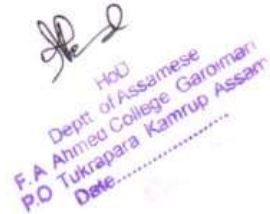 HOD
Deptt of Assamese
F.A Ahmed College Garoimari
P.O Tukrapara Kamrup Assam
Date....................